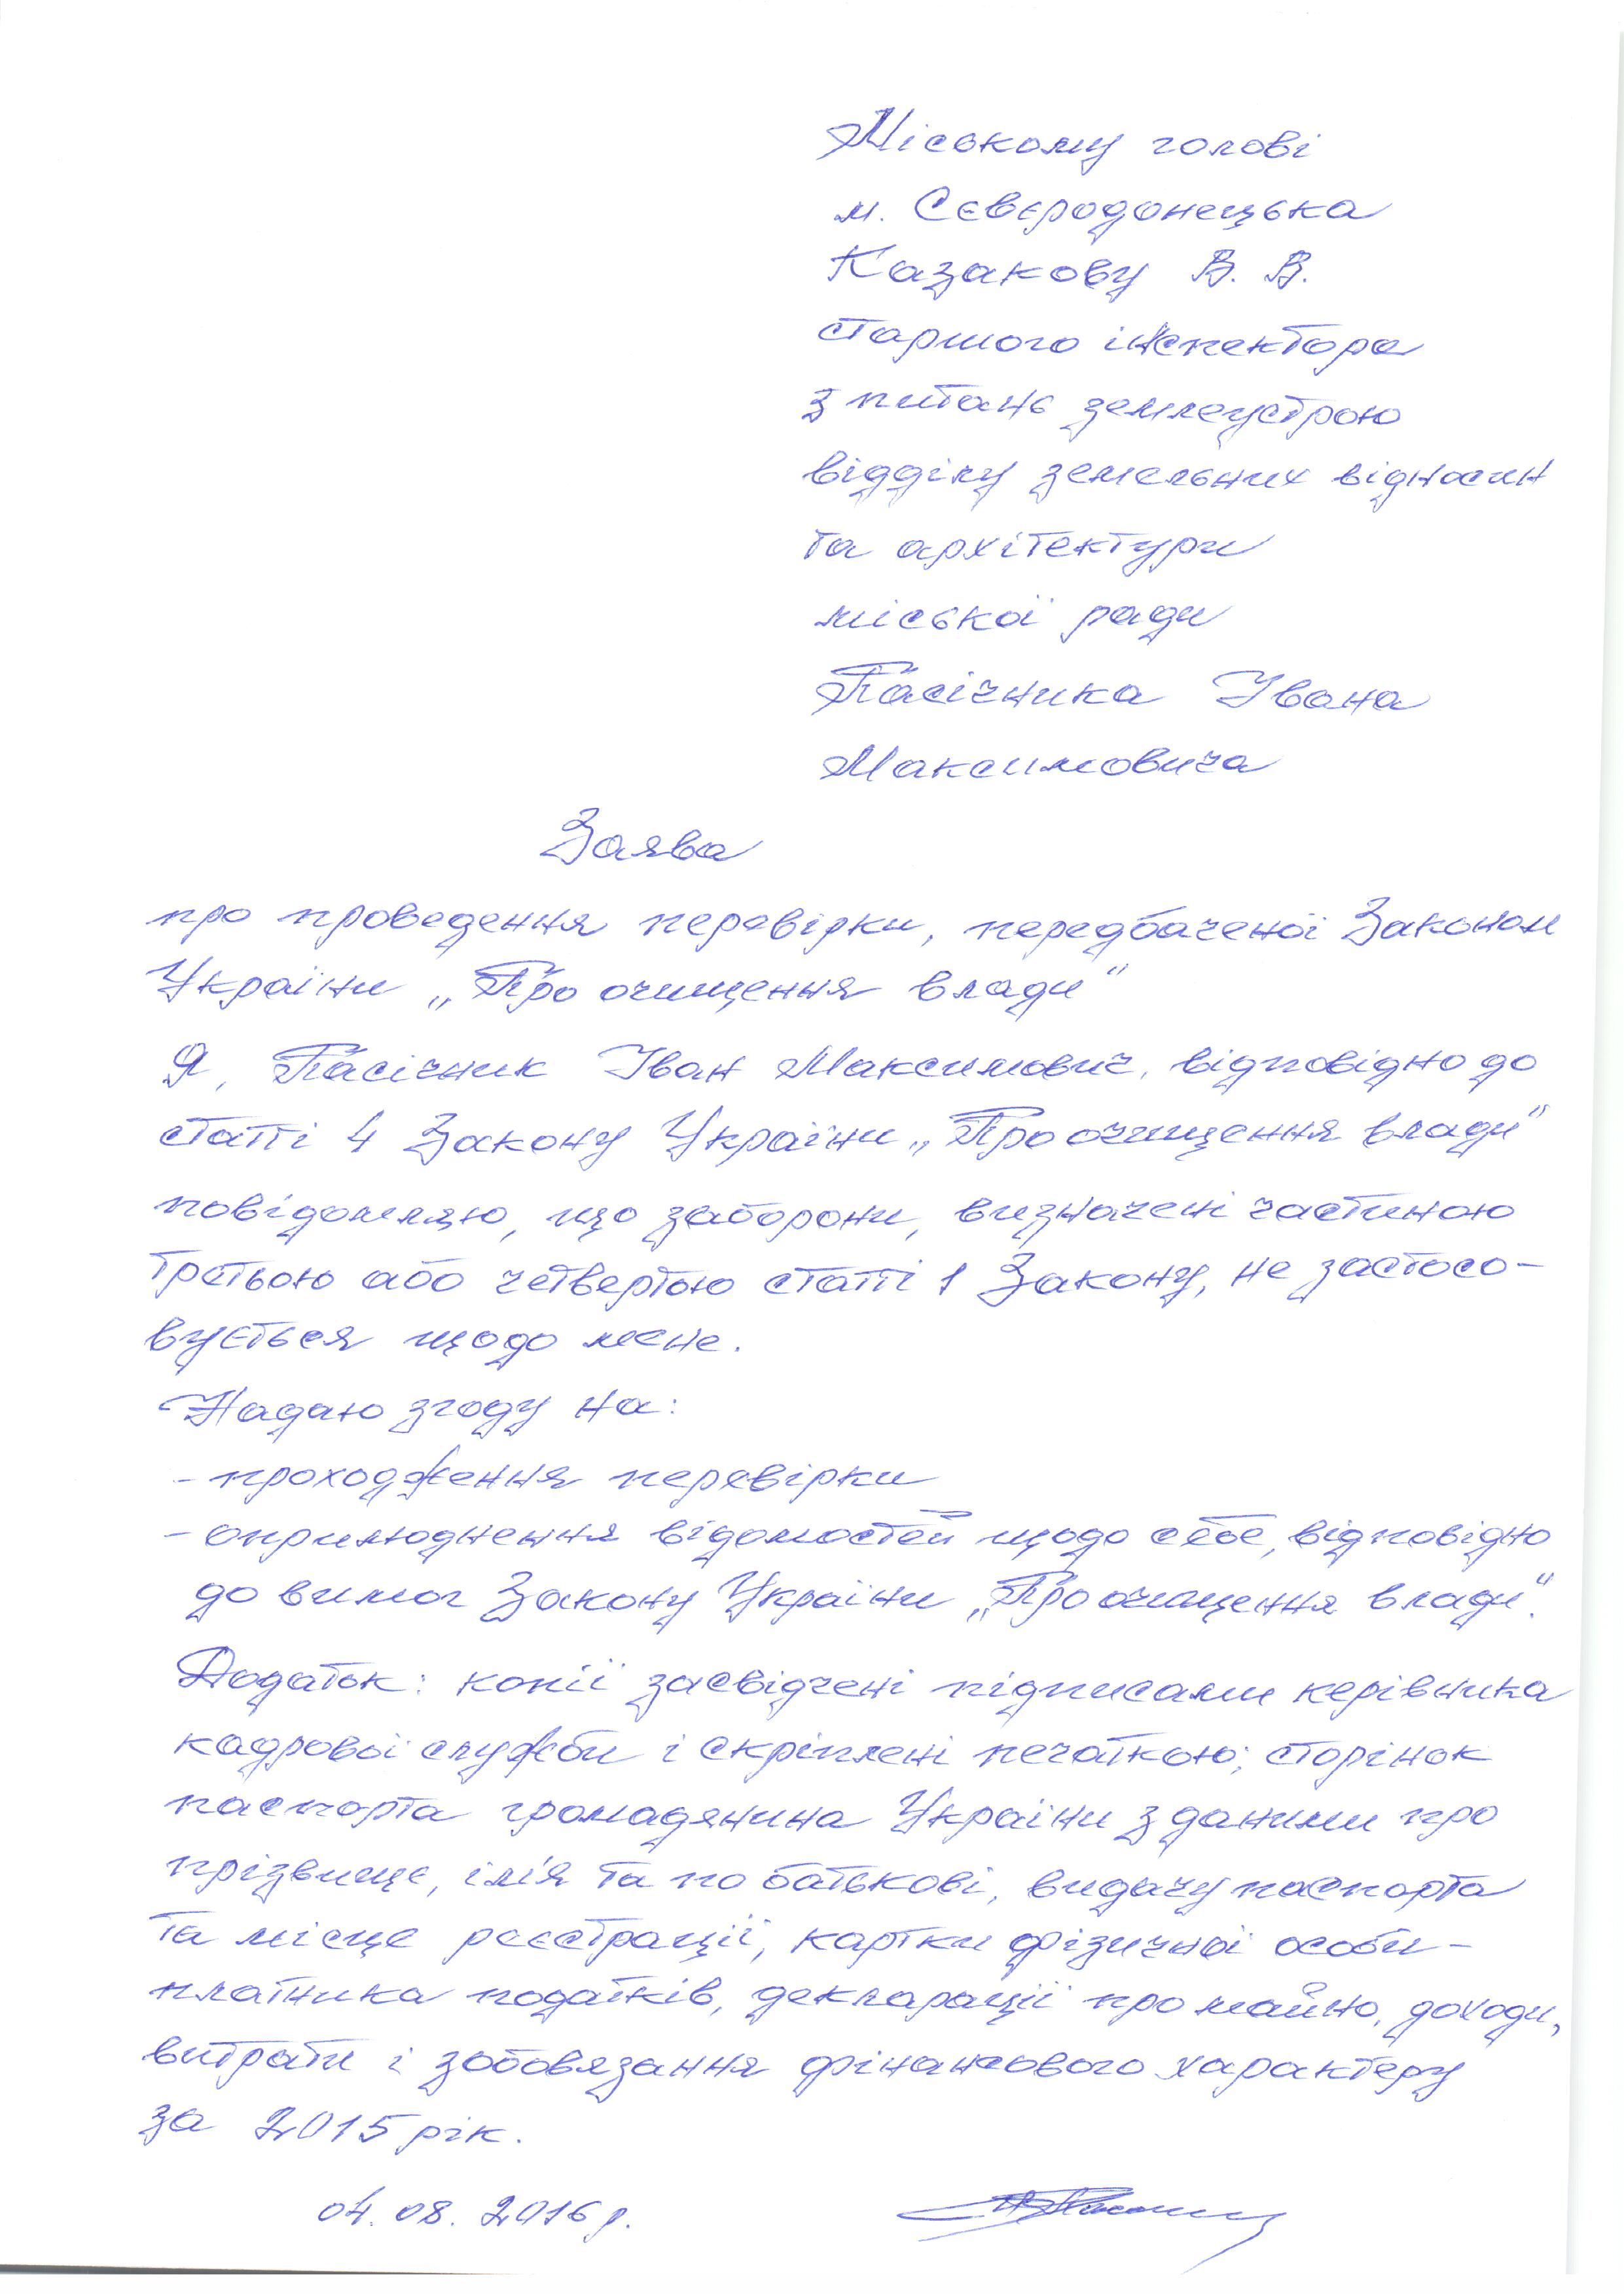 Міському голові
м. Сєвєродонецька
Казакову В. В.
старшого інспектора
з питань землеустрою
відділу земельних відносин
та архітектури
міської ради
Пасічника Івана
Максимовича
Заява
про проведення перевірки, передбаченої Законом
України „Про очищення влади"
Я, Пасічник Іван Максимович, відповідно до
статті 4 Закону України „Про очищення влади"
повідомляю, що заборони, визначені частиною
третьою або четвертою статті 1 Закону, не застосо-
вується щодо мене.
Надаю згоду на:
- проходження перевірки
- оприлюднення відомостей щодо себе, відповідно
до вимог Закону України „Про очищення влади".
Додаток: копії засвідчені підписами керівника
кадрової служби і скріплені печаткою; сторінок
паспорта громадянина України з даними про
прізвище, ім'я та по батькові, видачу паспорта
та місце реєстрації, картки фізичної особи -
платника податків, декларації про майно, доходи,
витрати і зобовязання фінансового характеру
за 2015 рік.
04. 08. 2016 р.